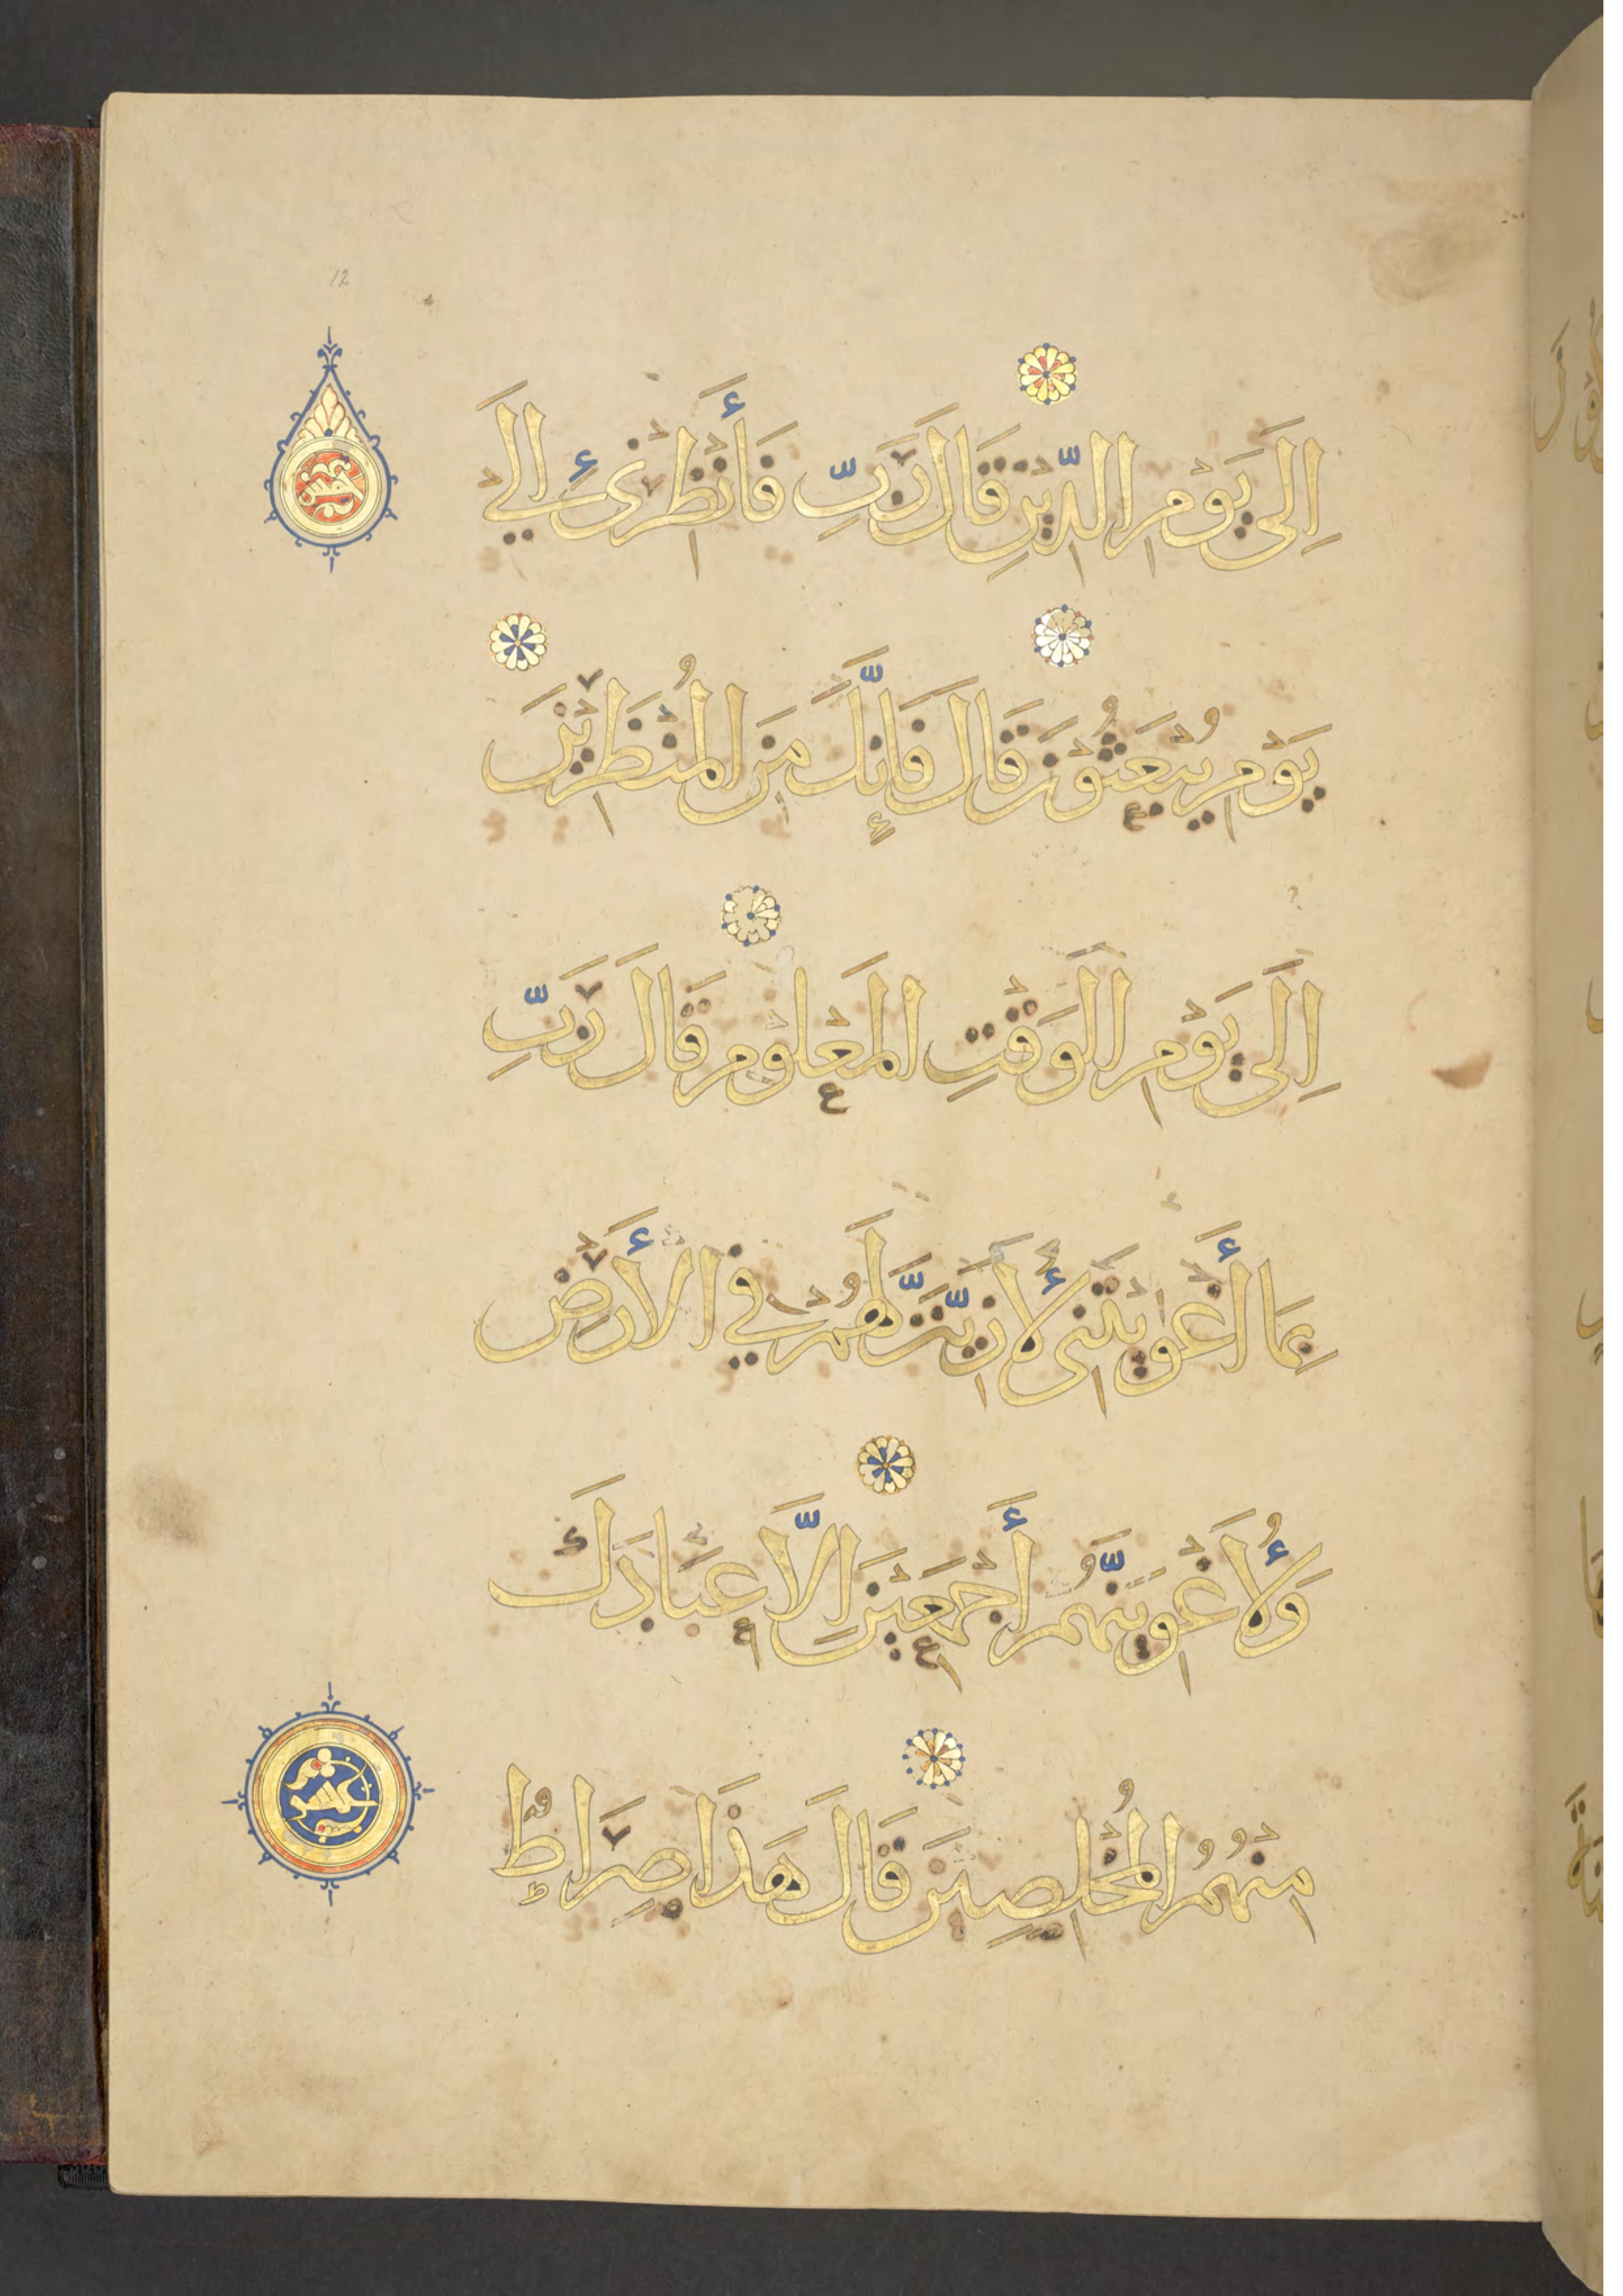 12
اِلَى يَوْمِ الدِّيْنِ قَالَ رَبِّ فَأَنْظِرْنِيْ إِلَىٰ
يَوْمِ يُبْعَثُوْنَ قَالَ فَإِنَّكَ مِنَ الْمُنْظَرِيْنَ
اِلَى يَوْمِ الْوَقْتِ الْمَعْلُوْمِ قَالَ رَبِّ
بِمَا أَغْوَيْتَنِى لَأُزَيِّنَنَّ لَهُمْ فِي الْأَرْضِ
وَلَأُغْوِيَنَّهُمْ أَجْمَعِيْنَ اِلَّا عِبَادَكَ
مِنْهُمُ الْمُخْلَصِيْنَ قَالَ هَذَا صِرَاطٌ
خمس